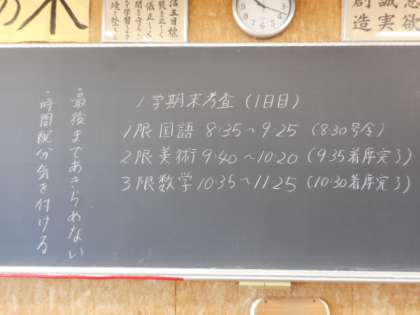 1学期末考査(1日目)
1限国語 8:35～9:25 (8:30号令)
2限美術 9:40～10:20 (9:35着席完了)
3限数学 10:35～11:25 (10:30着席完了)
・最後まであきらめない
・時間配分気を付ける
誠実
創造